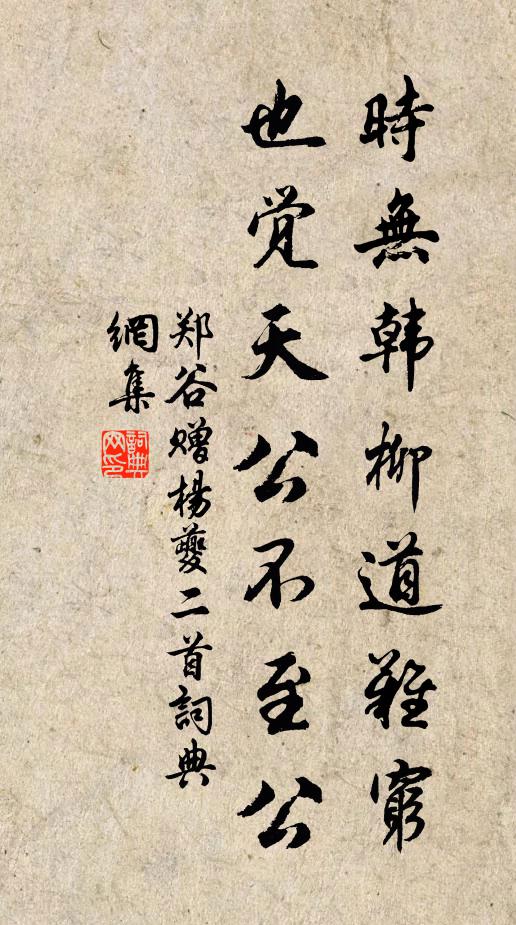 時無韩柳道難窮
也觉天公不至公
郑谷赠楊夔二首詞典
網集
詞典
网印